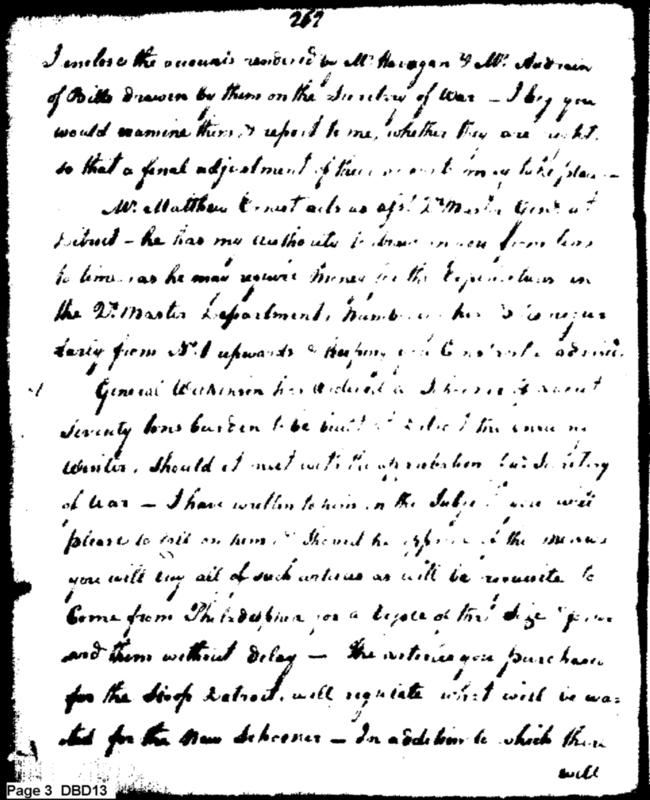 267
I enclose the accounts rendered by Mr Haragan & Mr. Audrain
of Bills drawn by them on the Secretary of War — I beg you
would examine them, & report to me, whether they are right,
so that a final adjustment of their accounts may take place —
Mr. Matthew Ernest acts as asst. Qr Master Genl. at
Detroit — he has my authority to draw on you from time
to time, as he may require money for the Expenditures in
the Qr. Master Department,
from No. 1 upwards & keeping you advised
General Wilkinson has ordered a Schooner of about
Seventy tons burden to be built at Detroit the ensuing
Winter, should it meet with the approbation Secretary
of War — I have written to him on the Subject you will
please to call on him & should he approve of the measure
you will buy all of such articles as will be requisite to
Come from Philadelphia for a Vessel of this Size
them without delay — The articles you purchase
for the Sloop Detroit, will regulate what will be wan-
ted for the New Schooner — In addition to which there
will
Page 3 DBD13